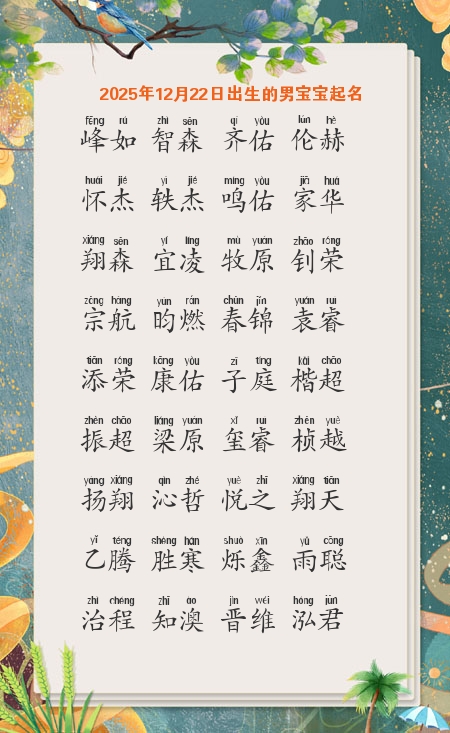 2025年12月22日出生的男宝宝起名
fēng rú zhì sēn qí yòu lún hè
峰如 智森 齐佑 伦赫
huái jié yì jié míng yòu jiā huá
怀杰 轶杰 鸣佑 家华
xiáng sēn yí líng mù yuán zhāo róng
翔森 宜凌 牧原 钊荣
zōng háng yún rán chūn jǐn yuán ruì
宗航 昀燃 春锦 袁睿
tiān róng kāng yòu zǐ tíng kǎi chāo
添荣 康佑 子庭 楷超
zhèn chāo liáng yuán xǐ ruì zhēn yuè
振超 梁原 玺睿 桢越
yáng xiáng qìn zhé yuè zhī xiáng tiān
扬翔 沁哲 悦之 翔天
yǐ téng shèng hán shuò xīn yǔ cōng
乙腾 胜寒 烁鑫 雨聪
zhì chéng zhī ào jìn wéi hóng jūn
治程 知澳 晋维 泓君